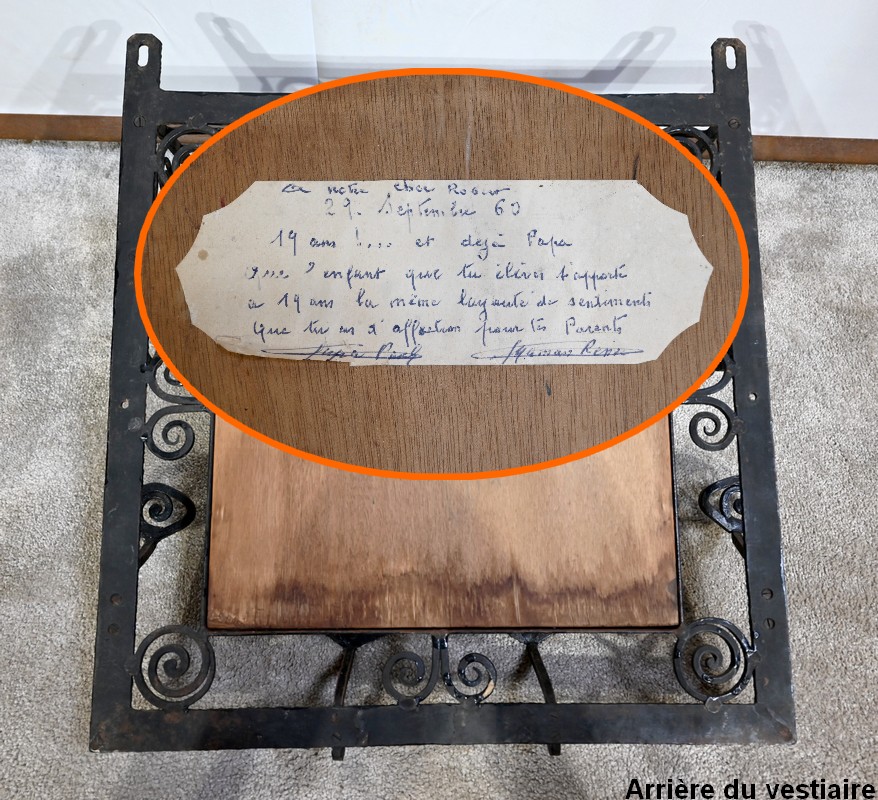 a notre cher Robert
29. Septembre 63
19 ans !... et dejà Papa
que l'enfant que tu élèves t'apporte
a 19 ans la même loyauté de sentiments
que tu as d'affection pour tes Parents
Papa Maman
Arrière du vestiaire